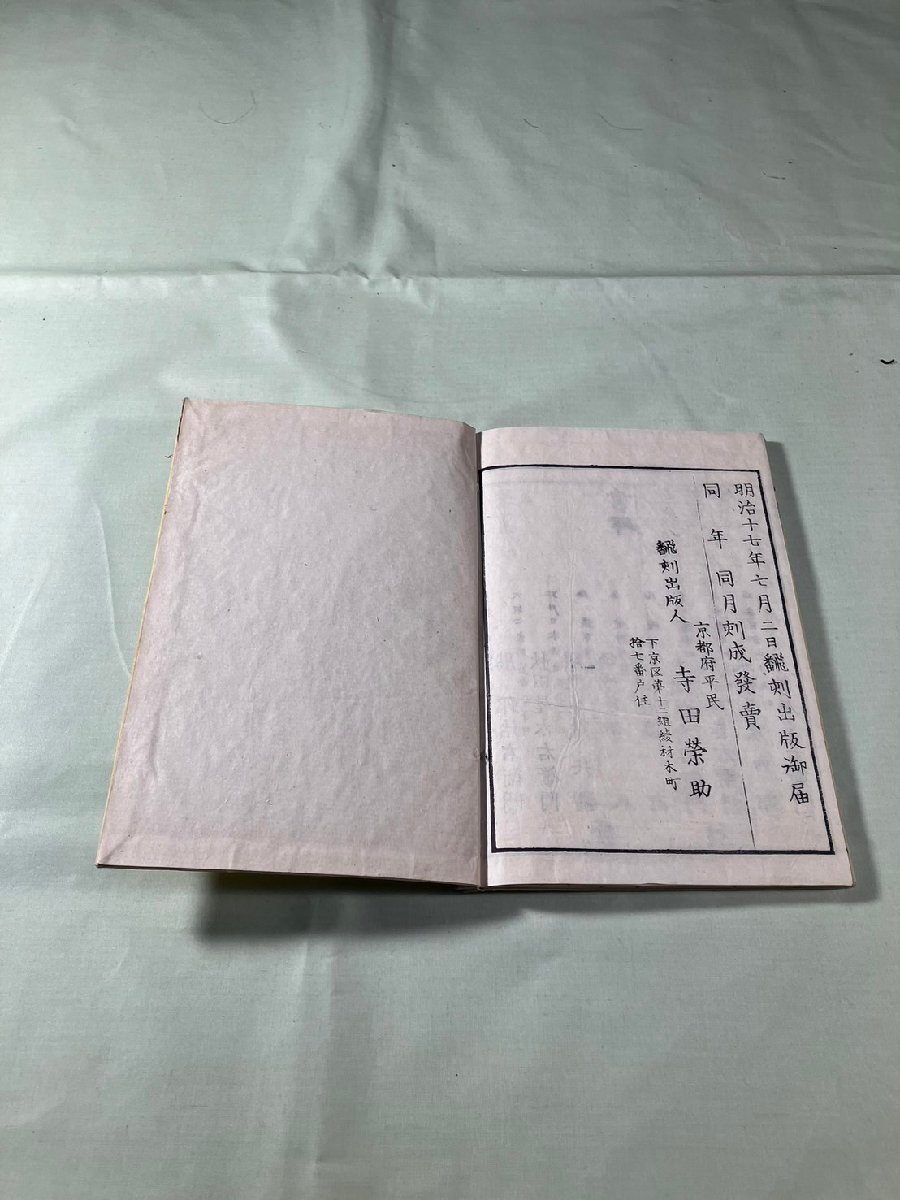 明治十七年七月二日飜刻出版御届
同年同月刻成發賣
京都府平民
飜刻出版人 寺田榮助
下京区第十三組綾材木町
拾七番戸住